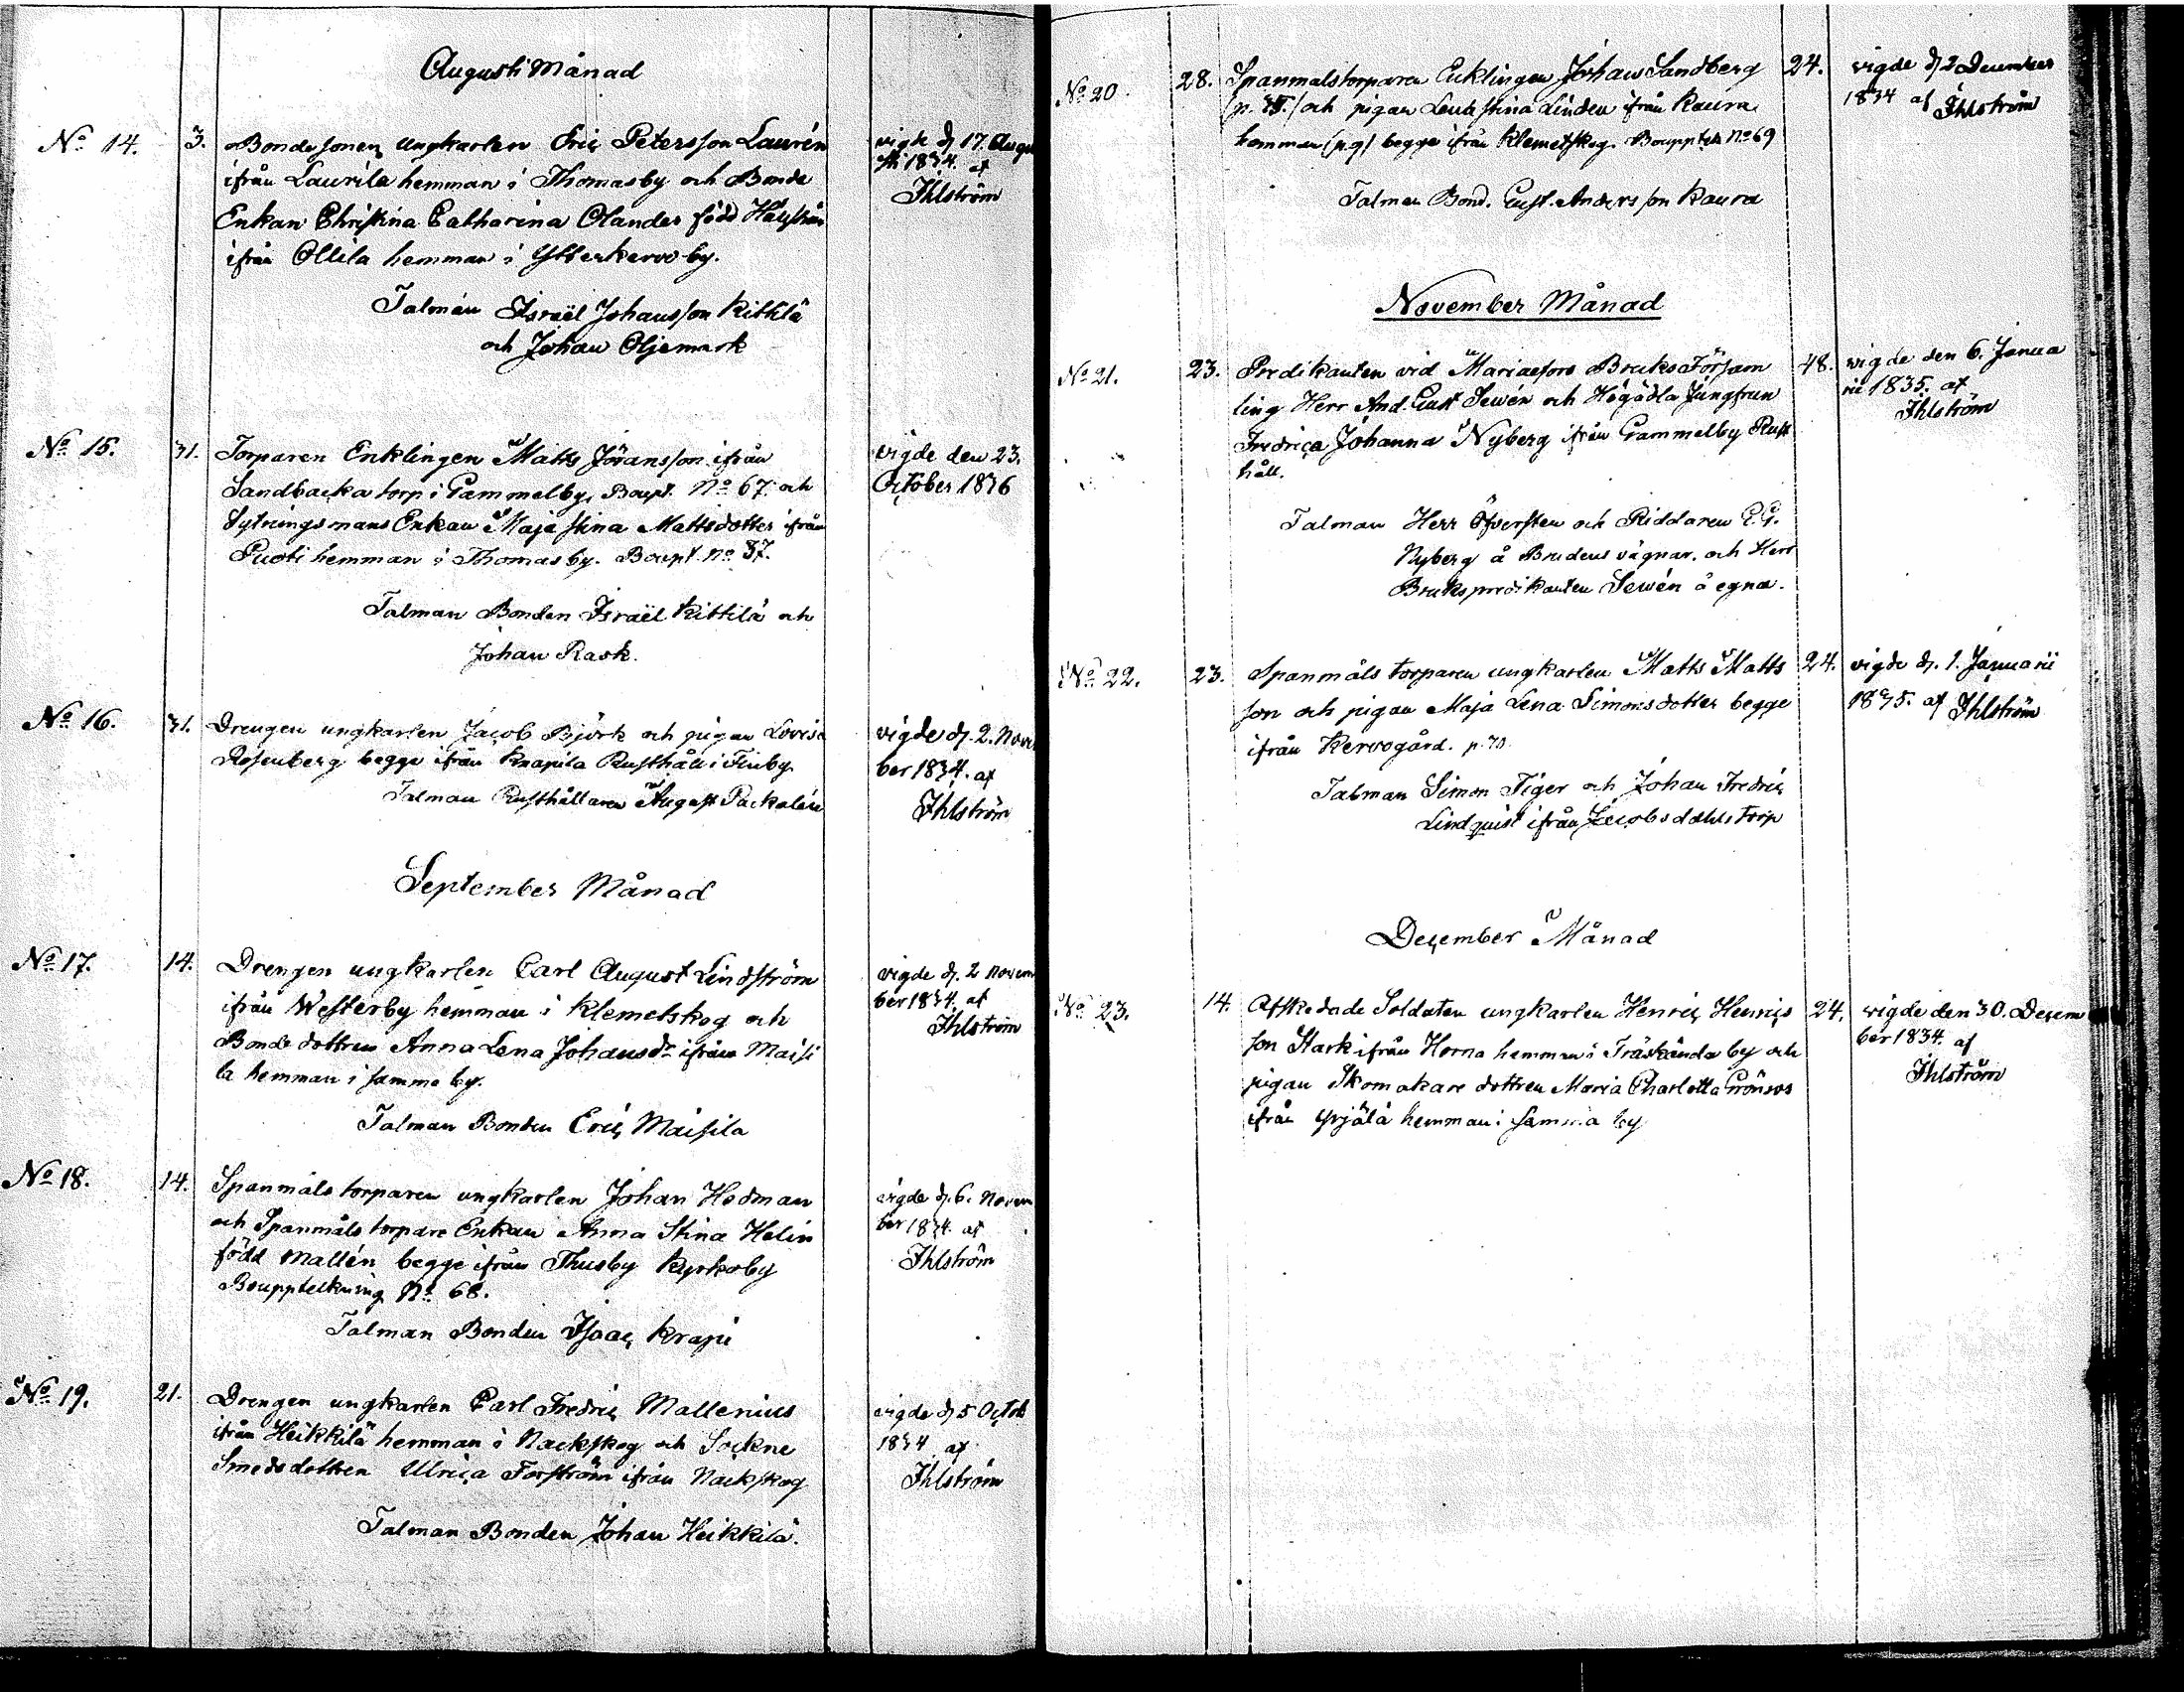 Augusti Månad
No 14. 3. Bondesonen ungkarlen Eric Petersson Laurén
ifrån Laurila hemman i Thomasby och Bonde
Enkan Christina Catharina Olander född
ifrån Ollila hemman i Ytterkervo by.
Talmän Israël Johansson Kittilä
och Johan Oljemark
vigde d. 17. Augu
sti 1834. af
Ihlström
No 15. 31. Torparen Enklingen Matts Jöransson ifrån
Sandbacka torp i Gammelby, Boupt. No 67. och
Sytningsmans Enkan Maja Stina Mattsdotter ifrån
Puoti hemman i Thomasby. Boupt. no 37.
Talman Bonden Israël Kittilä och
Johan Rask.
vigde den 23.
October 1836
No 16. 31. Drengen ungkarlen Jacob Björk och pigan Lovisa
Rosenberg begge ifrån Knapila Rusthåll i Finby
Talman Rusthållaren August Packalén
vigde d. 2. Nove
ber 1834. af
Ihlström
September Månad
No 17. 14. Drengen ungkarlen Carl August Lindström
ifrån Westerby hemman i Klemetskog och
Bonde dottren Anna Lena Johansdr ifrån Maisi
la hemman i samma by.
Talman Bonden Eric Maisila
vigde d. 2 Novem
ber 1834. af
Ihlström
No 18. 14. Spanmåls torparen ungkarlen Johan Hedman
och Spanmåls torpare Enkan Anna Stina Helin
född Mallén begge ifrån Thusby Kyrkoby
Bouppteckning No 68.
Talman Bonden Isaac Krapi
vigde d. 6. Novem
ber 1834. af
Ihlström
No 19. 21. Drengen ungkarlen Carl Fredric Mallenius
ifrån Heikkilä hemman i Nackskog och Sockne
Smedsdottren Ulrica Forström ifrån Nackskog
Talman Bonden Johan Heikkilä.
vigde d. 5 Octob
1834 af
Ihlström
No 20. 28. Spanmålstorparen Enklingen Johan Sandberg 24.
och pigan Lena Stina Linden ifrån Kaura
hemman (p.9) begge ifrån Klemetskog. Bouppteck No 69
Talman Bond. Gust. Andersson Kaura
vigde d. 2 December
1834 af Ihlström
November Månad
No 21. 23. Predikanten vid Mariaefors Bruks Församling 48.
ling Herr And. Gust Sewén och Högädla Jungfrun
Fredrica Johanna Nyberg ifrån Gammelby Rust
håll.
Talman Herr Öfversten och Riddaren C. G.
Nyberg å Brudens vägnar. och Herr
Brukspredikanten Sewén å egna.
vigde den 6. Janua
rii 1835. af
Ihlström
No 22. 23. Spanmåls torparen ungkarlen Matts Matts 24.
son och pigan Maja Lena Simonsdotter begge
ifrån Kervogård. p. 70.
Talman Simon Tiger och Johan Fredric
Lindquist ifrån Jacobsdahls torp
vigde d. 1. Januarii
1835. af Ihlström
December Månad
No 23. 14. Afskedade Soldaten ungkarlen Henric Henrics 24.
son Stark ifrån Horna hemman i Träskända by och
pigan Skomakare dottren Maria Charlotta Grönroos
ifrån Yrjälä hemman i samma by
vigde den 30. Decem
ber 1834. af
Ihlström